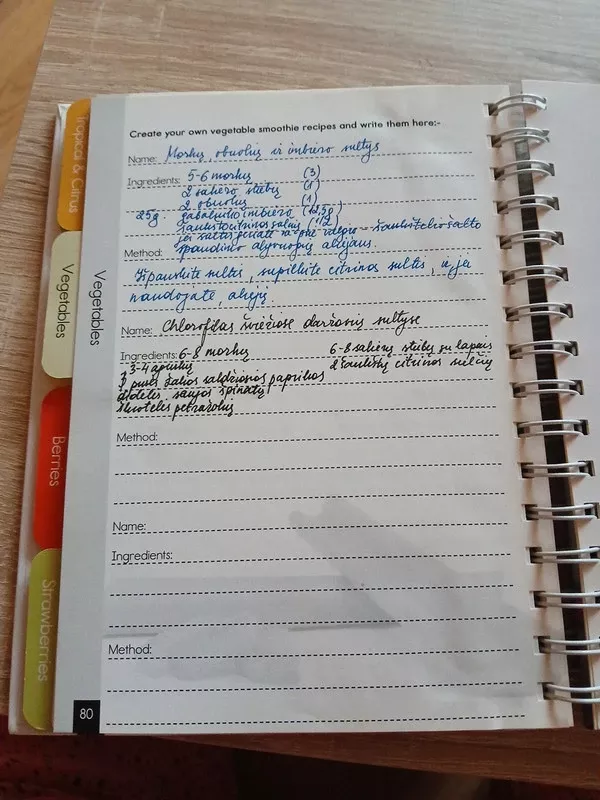 Create your own vegetable smoothie recipes and write them here:-
Name: Morkų obuolių ir imbiero sultys
Ingredients: 5-6 morkų (3)
2 saliero stiebų (1)
2 obuolių (1)
25g. gabaliuko imbiero (12,5g)
šaukšto citrinos sulčių (1/2)
jei sultis geriate - šaukštelio šalto
spaudimo alyvuogių aliejaus.
Method:
Išspauskite sultis, supilkite citrinos sultis, ir jei
naudojate, aliejų.
Name: Chlorofilas šviežiose daržovių sultyse
Ingredients: 6-8 morkų
6-8 salierų stiebų su lapais
3-4 agurkų
2 šaukštų citrinos sulčių
pusės žalios saldžiosios paprikos
didelės saujos špinatų
petražolių
Method:
Name:
Ingredients:
Method:
80
Tropical & Citrus
Vegetables
Vegetables
Berries
Strawberries